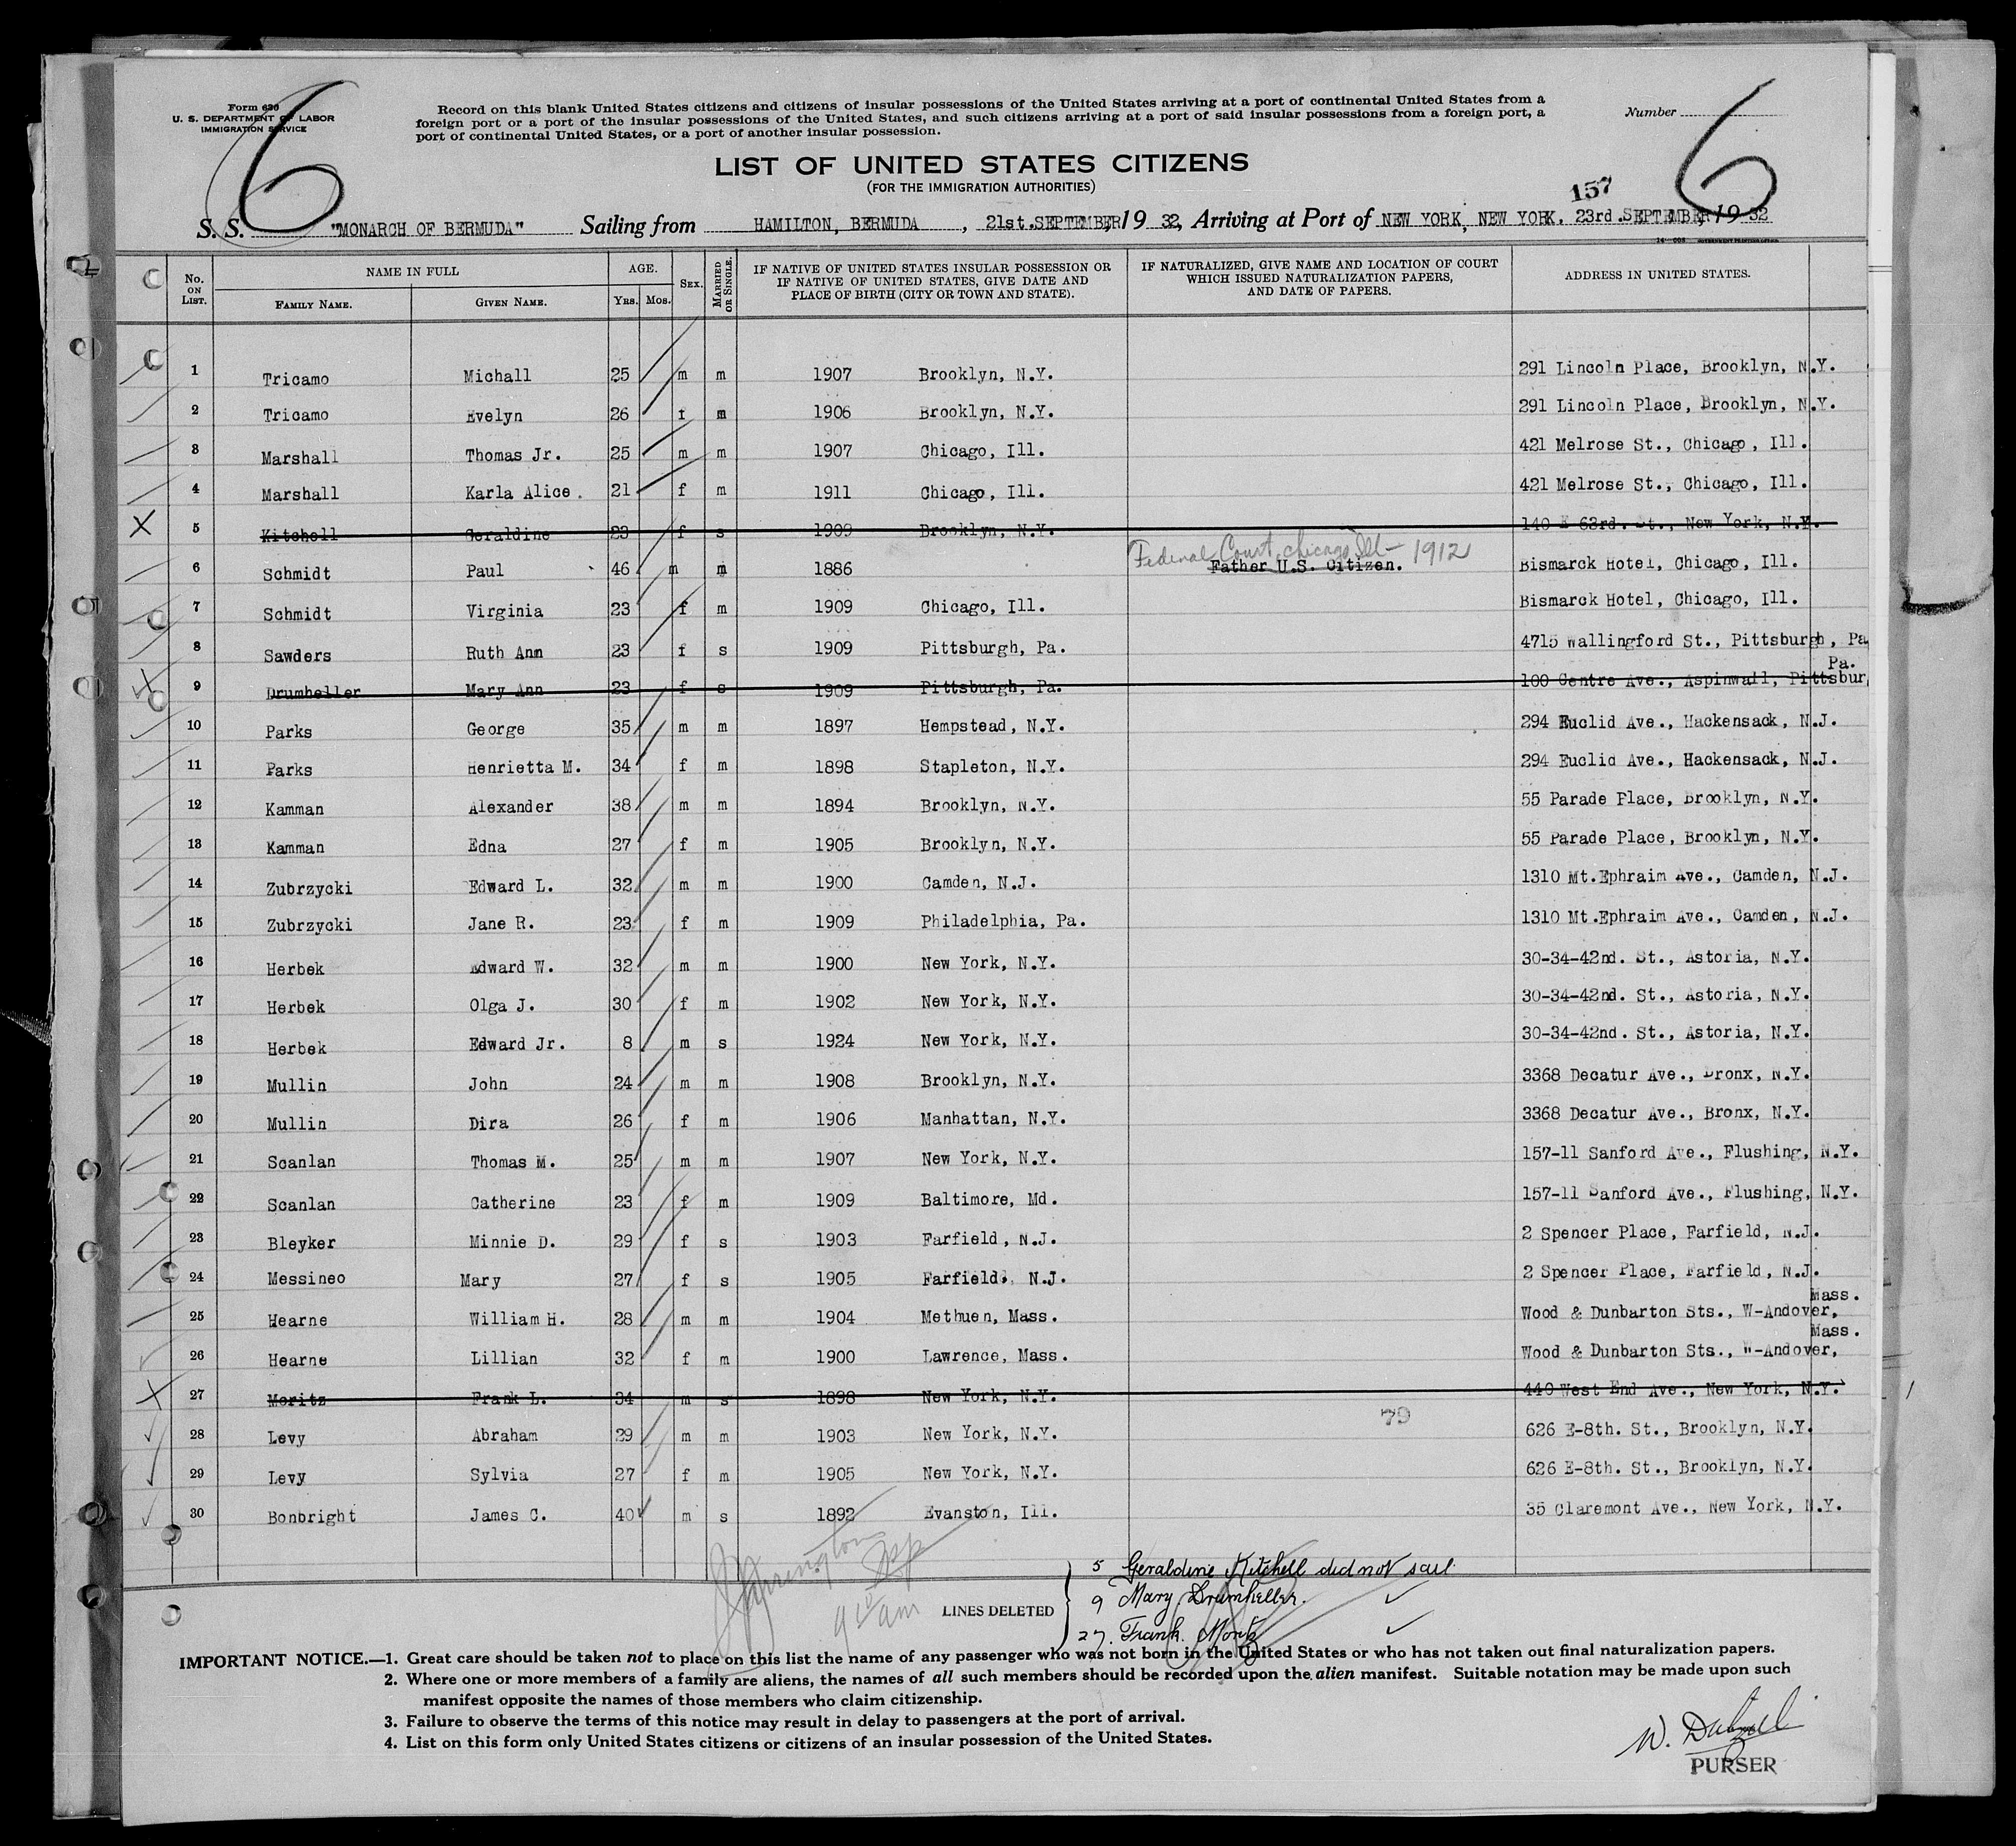 Form 630
U. S. DEPARTMENT OF LABOR
IMMIGRATION SERVICE
6
Record on this blank United States citizens and citizens of insular possessions of the United States arriving at a port of continental United States from a
foreign port or a port of the insular possessions of the United States, and such citizens arriving at a port of said insular possessions from a foreign port, a
port of continental United States, or a port of another insular possession.
Number
6
LIST OF UNITED STATES CITIZENS
(FOR THE IMMIGRATION AUTHORITIES)
157
S. S. "MONARCH OF BERMUDA" Sailing from HAMILTON, BERMUDA, 21st. SEPTEMBER, 19 32, Arriving at Port of NEW YORK, NEW YORK. 23rd. SEPTEMBER, 19 32
No. ON LIST. NAME IN FULL AGE. Sex. MARRIED OR SINGLE. IF NATIVE OF UNITED STATES INSULAR POSSESSION OR IF NATIVE OF UNITED STATES, GIVE DATE AND PLACE OF BIRTH (CITY OR TOWN AND STATE). IF NATURALIZED, GIVE NAME AND LOCATION OF COURT WHICH ISSUED NATURALIZATION PAPERS, AND DATE OF PAPERS. ADDRESS IN UNITED STATES.
FAMILY NAME. GIVEN NAME. YRS. MOS.
1 Tricamo Michall 25 m m 1907 Brooklyn, N.Y. 291 Lincoln Place, Brooklyn, N.Y.
2 Tricamo Evelyn 26 f m 1906 Brooklyn, N.Y. 291 Lincoln Place, Brooklyn, N.Y.
3 Marshall Thomas Jr. 25 m m 1907 Chicago, Ill. 421 Melrose St., Chicago, Ill.
4 Marshall Karla Alice. 21 f m 1911 Chicago, Ill. 421 Melrose St., Chicago, Ill.
X 5 Kitchell Geraldine 23 f s 1909 Brooklyn, N.Y. 140 E 63rd. St., New York, N.Y.
Federal Court, Chicago Ill - 1912
6 Schmidt Paul 46 m m 1886 Father U.S. Citizen. Bismarck Hotel, Chicago, Ill.
7 Schmidt Virginia 23 f m 1909 Chicago, Ill. Bismarck Hotel, Chicago, Ill.
8 Sawders Ruth Ann 23 f s 1909 Pittsburgh, Pa. 4715 Wallingford St., Pittsburgh, Pa
Pa.
X 9 Drumheller Mary Ann 23 f s 1909 Pittsburgh, Pa. 100 Centre Ave., Aspinwall, Pittsbur
10 Parks George 35 m m 1897 Hempstead, N.Y. 294 Euclid Ave., Hackensack, N.J.
11 Parks Henrietta M. 34 f m 1898 Stapleton, N.Y. 294 Euclid Ave., Hackensack, N.J.
12 Kamman Alexander 38 m m 1894 Brooklyn, N.Y. 55 Parade Place, Brooklyn, N.Y.
13 Kamman Edna 27 f m 1905 Brooklyn, N.Y. 55 Parade Place, Brooklyn, N.Y.
14 Zubrzycki Edward L. 32 m m 1900 Camden, N.J. 1310 Mt.Ephraim Ave., Camden, N.J.
15 Zubrzycki Jane R. 23 f m 1909 Philadelphia, Pa. 1310 Mt.Ephraim Ave., Camden, N.J.
16 Herbek Edward W. 32 m m 1900 New York, N.Y. 30-34-42nd. St., Astoria, N.Y.
17 Herbek Olga J. 30 f m 1902 New York, N.Y. 30-34-42nd. St., Astoria, N.Y.
18 Herbek Edward Jr. 8 m s 1924 New York, N.Y. 30-34-42nd. St., Astoria, N.Y.
19 Mullin John 24 m m 1908 Brooklyn, N.Y. 3368 Decatur Ave., Bronx, N.Y.
20 Mullin Dira 26 f m 1906 Manhattan, N.Y. 3368 Decatur Ave., Bronx, N.Y.
21 Scanlan Thomas M. 25 m m 1907 New York, N.Y. 157-11 Sanford Ave., Flushing, N.Y.
22 Scanlan Catherine 23 f m 1909 Baltimore, Md. 157-11 Sanford Ave., Flushing, N.Y.
23 Bleyker Minnie D. 29 f s 1903 Farfield, N.J. 2 Spencer Place, Farfield, N.J.
24 Messineo Mary 27 f s 1905 Farfield, N.J. 2 Spencer Place, Farfield, N.J.
Mass.
25 Hearne William H. 28 m m 1904 Methuen, Mass. Wood & Dunbarton Sts., W-Andover,
Mass.
26 Hearne Lillian 32 f m 1900 Lawrence, Mass. Wood & Dunbarton Sts., W-Andover,
X 27 Moritz Frank L. 34 m s 1898 New York, N.Y. 440 West End Ave., New York, N.Y.
79
28 Levy Abraham 29 m m 1903 New York, N.Y. 626 E-8th. St., Brooklyn, N.Y.
29 Levy Sylvia 27 f m 1905 New York, N.Y. 626 E-8th. St., Brooklyn, N.Y.
30 Bonbright James C. 40 m s 1892 Evanston, Ill. 35 Claremont Ave., New York, N.Y.
5 Geraldine Kitchell did not sail
LINES DELETED 9 Mary Drumheller. ✓
27. Frank Moritz ✓
IMPORTANT NOTICE.—1. Great care should be taken not to place on this list the name of any passenger who was not born in the United States or who has not taken out final naturalization papers.
2. Where one or more members of a family are aliens, the names of all such members should be recorded upon the alien manifest. Suitable notation may be made upon such
manifest opposite the names of those members who claim citizenship.
3. Failure to observe the terms of this notice may result in delay to passengers at the port of arrival.
4. List on this form only United States citizens or citizens of an insular possession of the United States.
PURSER